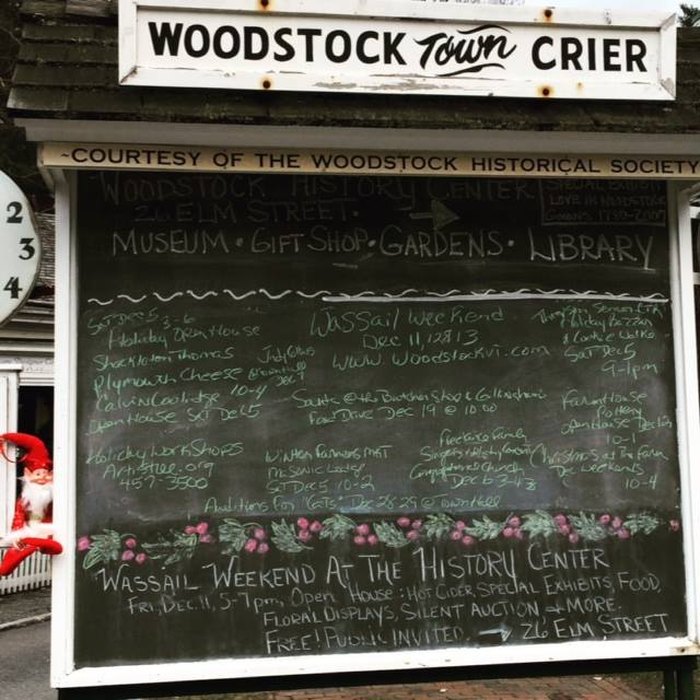 WOODSTOCK Town CRIER
~COURTESY OF THE WOODSTOCK HISTORICAL SOCIETY
WOODSTOCK HISTORY CENTER
26 ELM STREET.
SPECIAL EXHIBIT
LOVE IN WOODSTOCK
MUSEUM • GIFT SHOP • GARDENS • LIBRARY
2
3
4
Sat Dec 5 3-6
Holiday Open House
ShackletonThomas
Plymouth Cheese
Calvin Coolidge 10-4
Open House Sat Dec 5
Holiday Workshops
Artistree.org
457-3500
Wassail Weekend
Dec 11, 12 & 13
www.Woodstockvt.com
Food Drive Dec 19 @ 10:00
Winter Farmers Mkt
Masonic Lodge
Sat Dec 5 10-2
Family
Church
Dec 6
Auditions for "Cats" Dec 28 29 @ Town Hall
Holiday Bazaar
& Cookie Walk
Sat Dec 5
9-1pm
Farmhouse
Pottery
Open House Dec 12
10-1
Christmas at the Farm
Dec weekends
10-4
WASSAIL WEEKEND AT THE HISTORY CENTER
FRI, DEC 11, 5-7pm, OPEN HOUSE: HOT CIDER, SPECIAL EXHIBITS, FOOD,
FLORAL DISPLAYS, SILENT AUCTION + MORE.
FREE! PUBLIC INVITED. → 26 ELM STREET